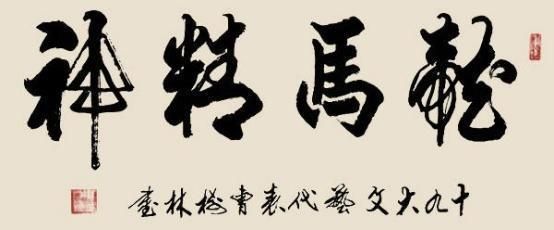 龍馬精神
十九大文藝代表曹林書